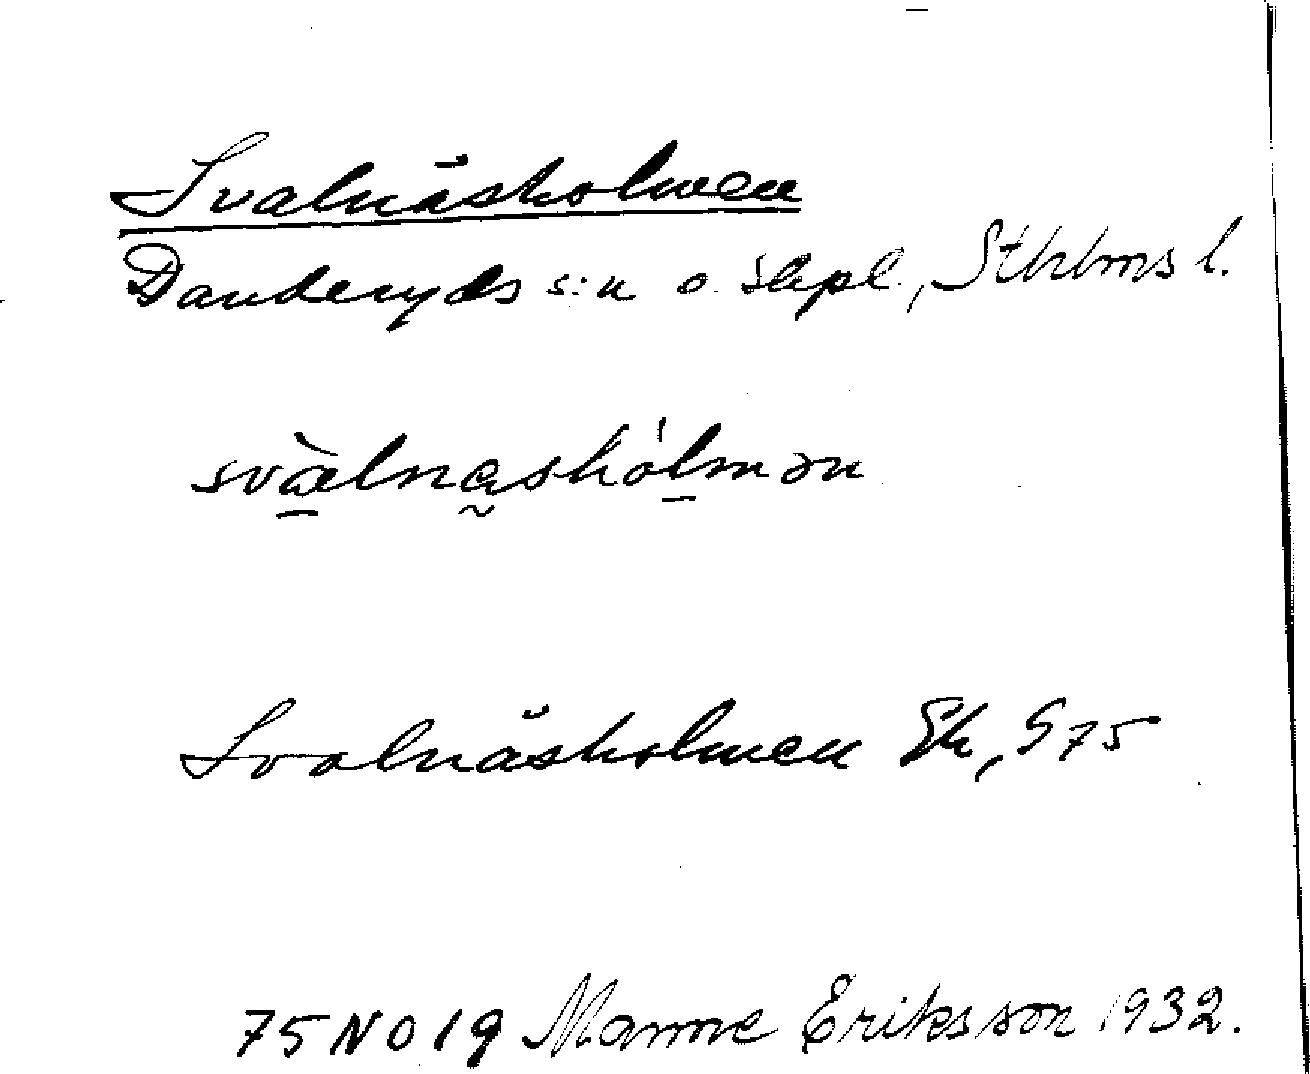 Svalnäsholmen
Danderyds s:n o. skpl., Sthlms l.
svàlnashólmən
Svalnäsholmen Ek, S75
75 NO 19 Manne Eriksson 1932.